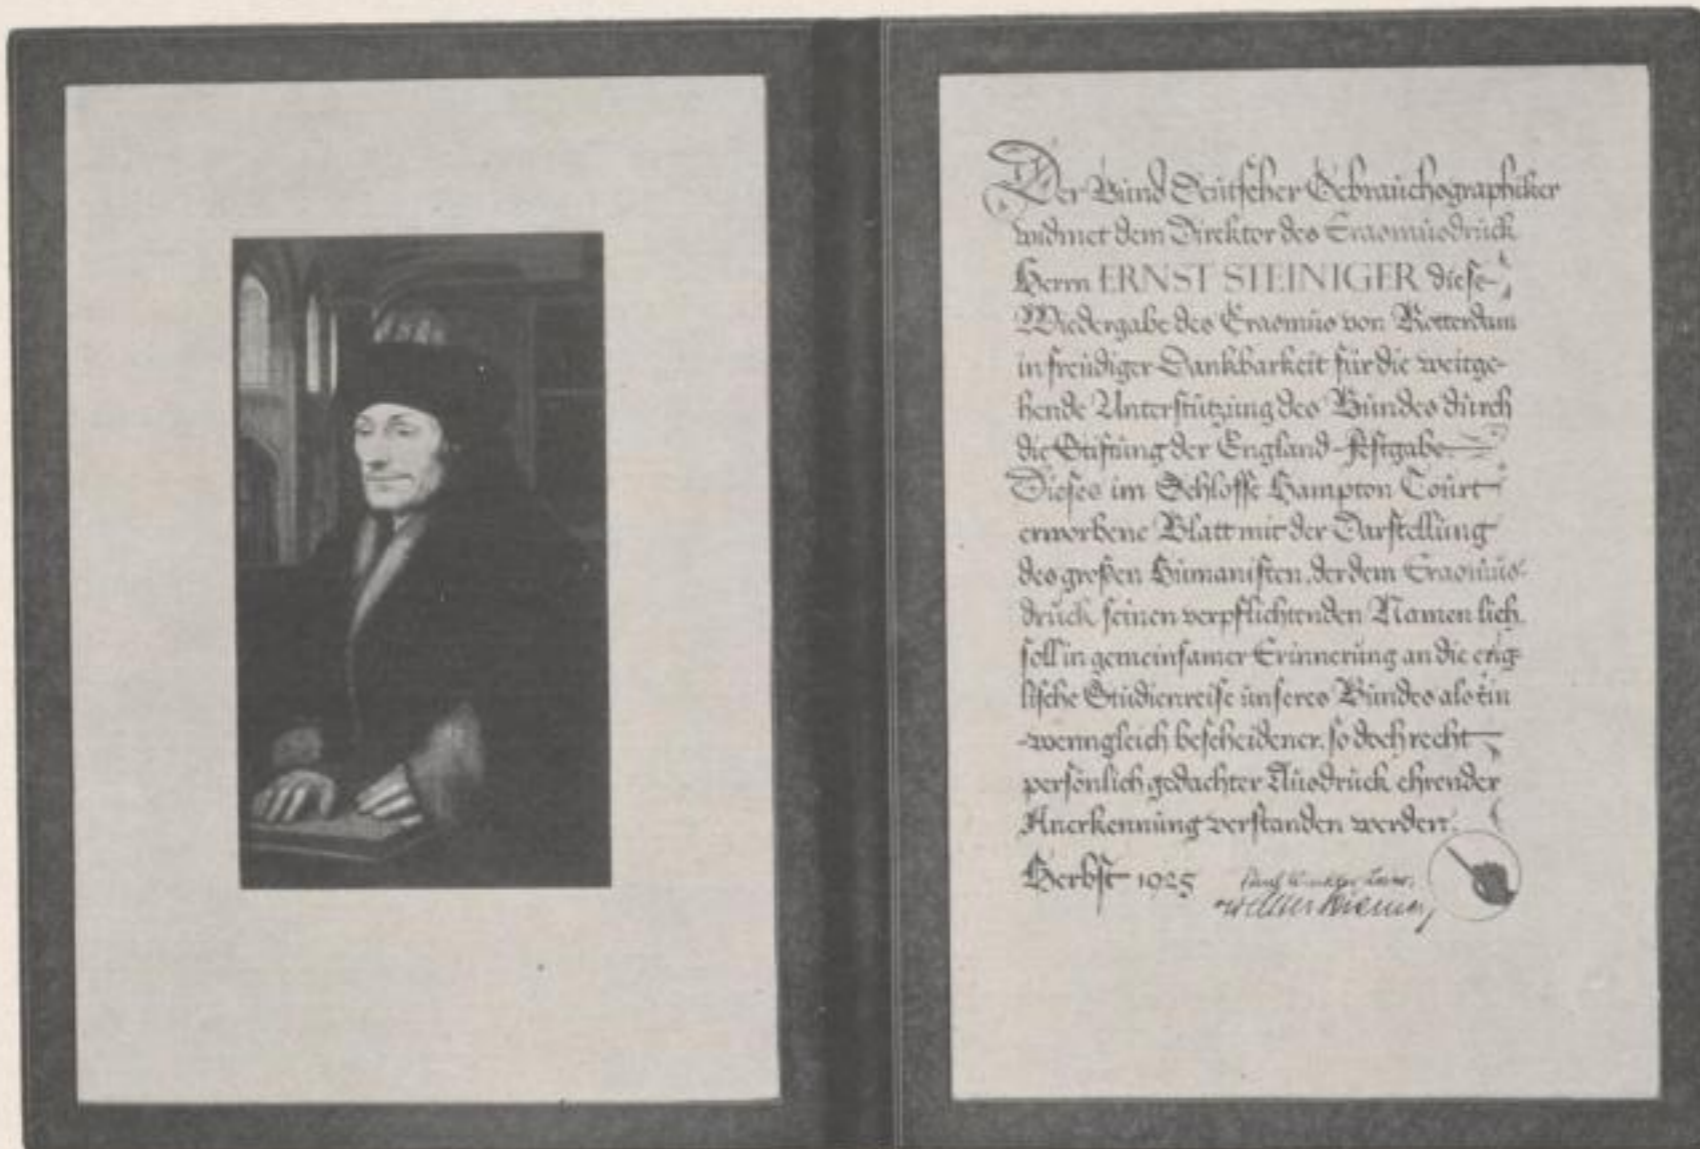 Der Bund Deutscher Gebrauchsgraphiker
widmet dem Direktor des Erasmusdruck
Herrn ERNST STEINIGER diese
Wiedergabe des Erasmus von Rotterdam
in freudiger Dankbarkeit für die weitge-
hende Unterstützung des Bundes durch
die Stiftung der England-Festgabe.
Dieses im Schlosse Hampton Court
erworbene Blatt mit der Darstellung
des großen Humanisten, der dem Erasmus-
druck seinen verpflichtenden Namen lieh,
soll in gemeinsamer Erinnerung an die eng-
lische Studienreise unseres Bundes als ein
-wenngleich bescheidener, so doch recht
persönlich gedachter Ausdruck ehrender
Anerkennung verstanden werden.
Herbst 1925